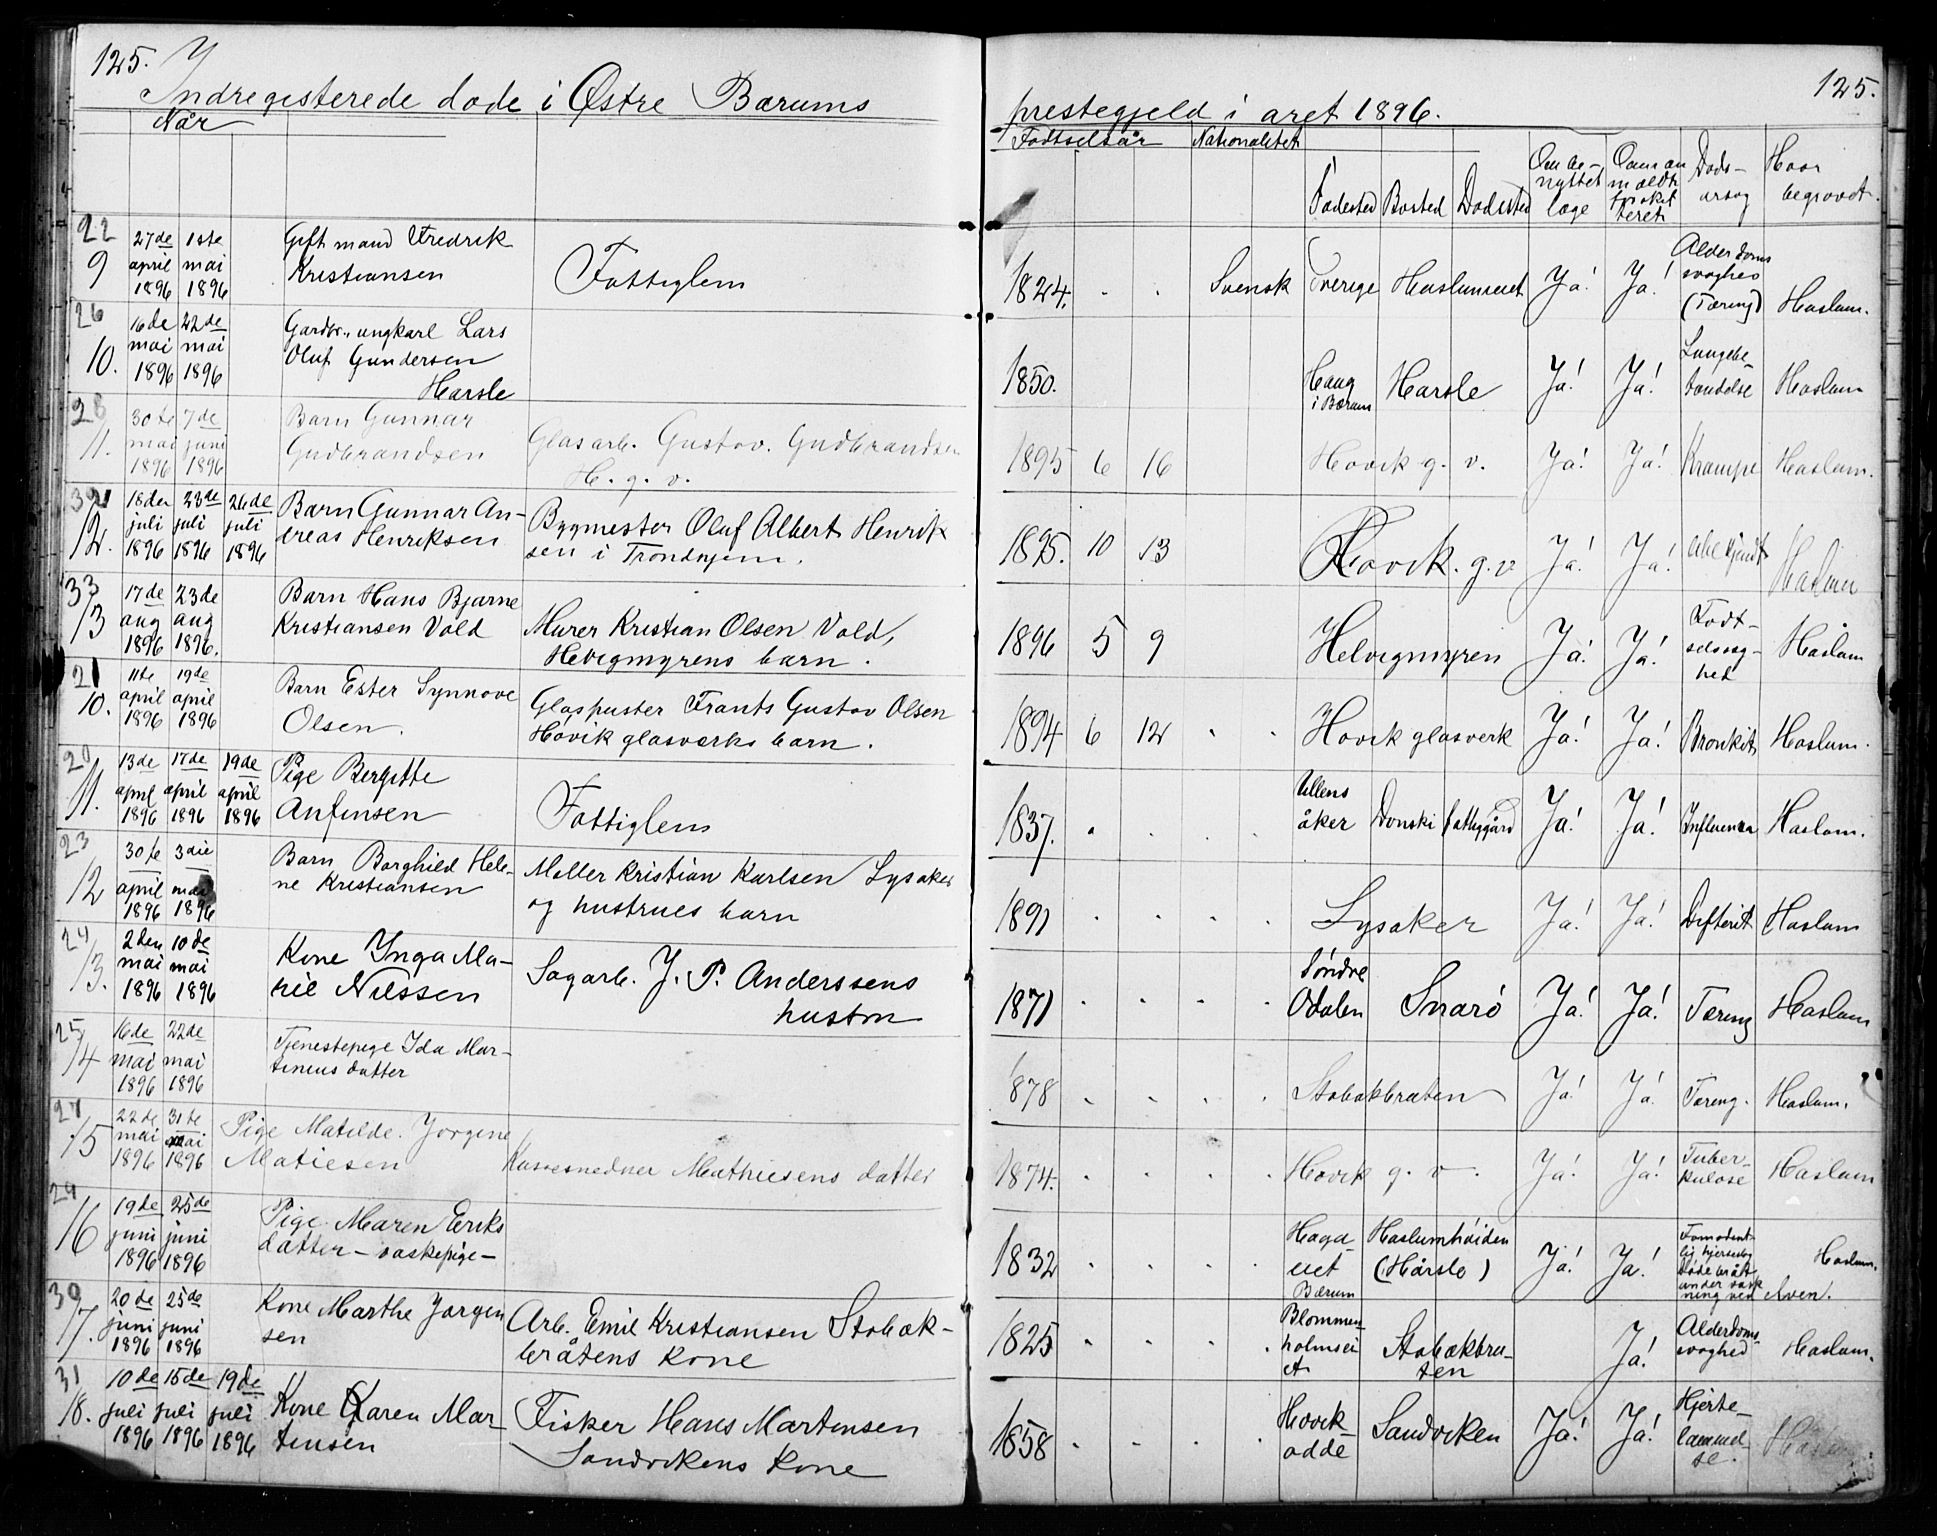 125.
Indregisterede døde i Østre Bærums
Når
22
9
27de april 1896
1ste mai 1896
Gift mand Fredrik
Kristiansen
Fattiglem
26
10.
16de mai 1896
22de mai 1896
Gardbr., ungkarl Lars
Oluf Gundersen
Harsle
28
11.
30te mai 1896
7de juni 1896
Barn Gunnar
Gudbrandsen
Glasarb. Gustav. Gudbrandsen
H. g. v.
32
12.
18de juli 1896
23de juli 1896
26de juli 1896
Barn Gunnar An-
dreas Henriksen
Bygmester Oluf Albert Henrik
sen i Trondhjem.
33
13
17de aug 1896
23de aug 1896.
Barn Hans Bjarne
Kristiansen Vold
Murer Kristian Olsen Vold,
Helvigmyrens barn.
21
10.
11te april 1896
19de april 1896
Barn Ester Synnøve
Olsen.
Glaspuster Frants Gustav Olsen
Høvik glasværks barn.
20
11.
13de april 1896
17de april 1896
19de april 1896
Pige Bergitte
Anfinsen
Fattiglem
23
12
30te april 1896
3die mai 1896
Barn Borghild Hele-
ne Kristiansen
Møller Kristian Karlsen Lysaker
og hustrues barn
24
13.
2den mai 1896
10de mai 1896
Kone Inga Ma-
rie Nilssen
Sagarb. J. P. Anderssens
hustru
25
14
16de mai 1896
22de mai 1896
Tjenestepige Ida Mar-
tinius datter
27
15
22de mai 1896
31te mai 1896
Pige Matilde. Jørgine
Matiesen
Mathiesens datter
29
16
19de juni 1896
25de juni 1896
Pige Maren Eriks
datter - vaskepige -
30
17.
20de juni 1896
25de juni 1896
Kone Marthe Jørgen
sen
Arb. Emil Kristiansen Stabæk-
bråtens kone
31
18.
10de juli 1896
15de juli 1896
19de juli 1896
Kone Karen Mar-
tinsen
Fisker Hans Martinsen
Sandvikens kone
125.
prestegjeld i året 1896.
Fødtselsår Nationalitet
Fødested Bosted Dødsted
Om be-
nyttet
læge
Døds-
årsag
Hvor
begravet.
1824. Svensk Sverige Haslumseiet Ja! Ja! Alderdoms
svaghed
(Tæring) Haslum.
1850. Haug
i Bærum Harsle Ja! Ja! Lungebe-
tændelse Haslum
1895 6 16 Høvik g. v. Ja! Ja! Krampe Haslum.
1895. 10 13 Høvik. g. v Ja! Ja! Ubekjendt Haslum
1896 5 9 Helvigmyren Ja! Ja! Født-
selssvag-
het Haslum
1894 6 12 Høvik glasverk Ja! Ja! Bronkit Haslum.
1837. Ullens
åker Donski fattiggård Ja! Ja! Influenza Haslum.
1891 Lysaker Ja! Ja! Difterit Haslum
1871 Søndre
Odalen Snarø Ja! Ja! Tæring Haslum
1878 Stabækbråten Ja! Ja! Tæring. Haslum.
1874. Høvik g. v. Ja! Ja! Tuber-
kulose Haslum
1832 Hagd-
eiet
Bærum Haslumhøiden
(Hårslø) Ja! Ja! Haslum.
1825 Blommen-
holmsei
et Stabækbrå-
ten Ja! Alderdoms-
svaghed Haslum.
1858 Høvik-
odde Sandviken Ja! Ja! Hjerte-
lammel-
se. Haslum